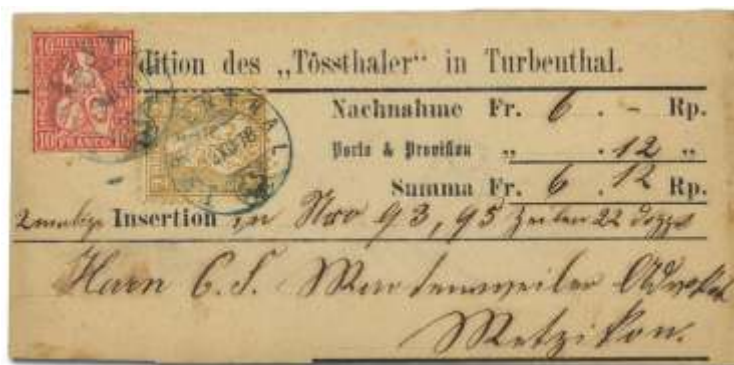 10 HELVETIA 10
10 FRANCO 10
dition des „Tössthaler“ in Turbenthal.
Nachnahme Fr. 6 . – Rp.
Porto & Provision „ . 12 „
Summa Fr. 6 . 12 Rp.
Insertion in Nro 93, 95 Zeilen 22
Herrn C. F.
Wetzikon.